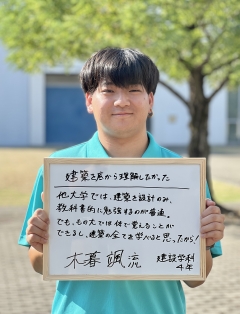 建築を底から理解したかった
他大学では、建築を設計のみ、
教科書的に勉強するのが普通。
でも、もの大では体で覚えることが
できるし、建築の全てを学べると思ったから!
木暮 颯流 建設学科
4年